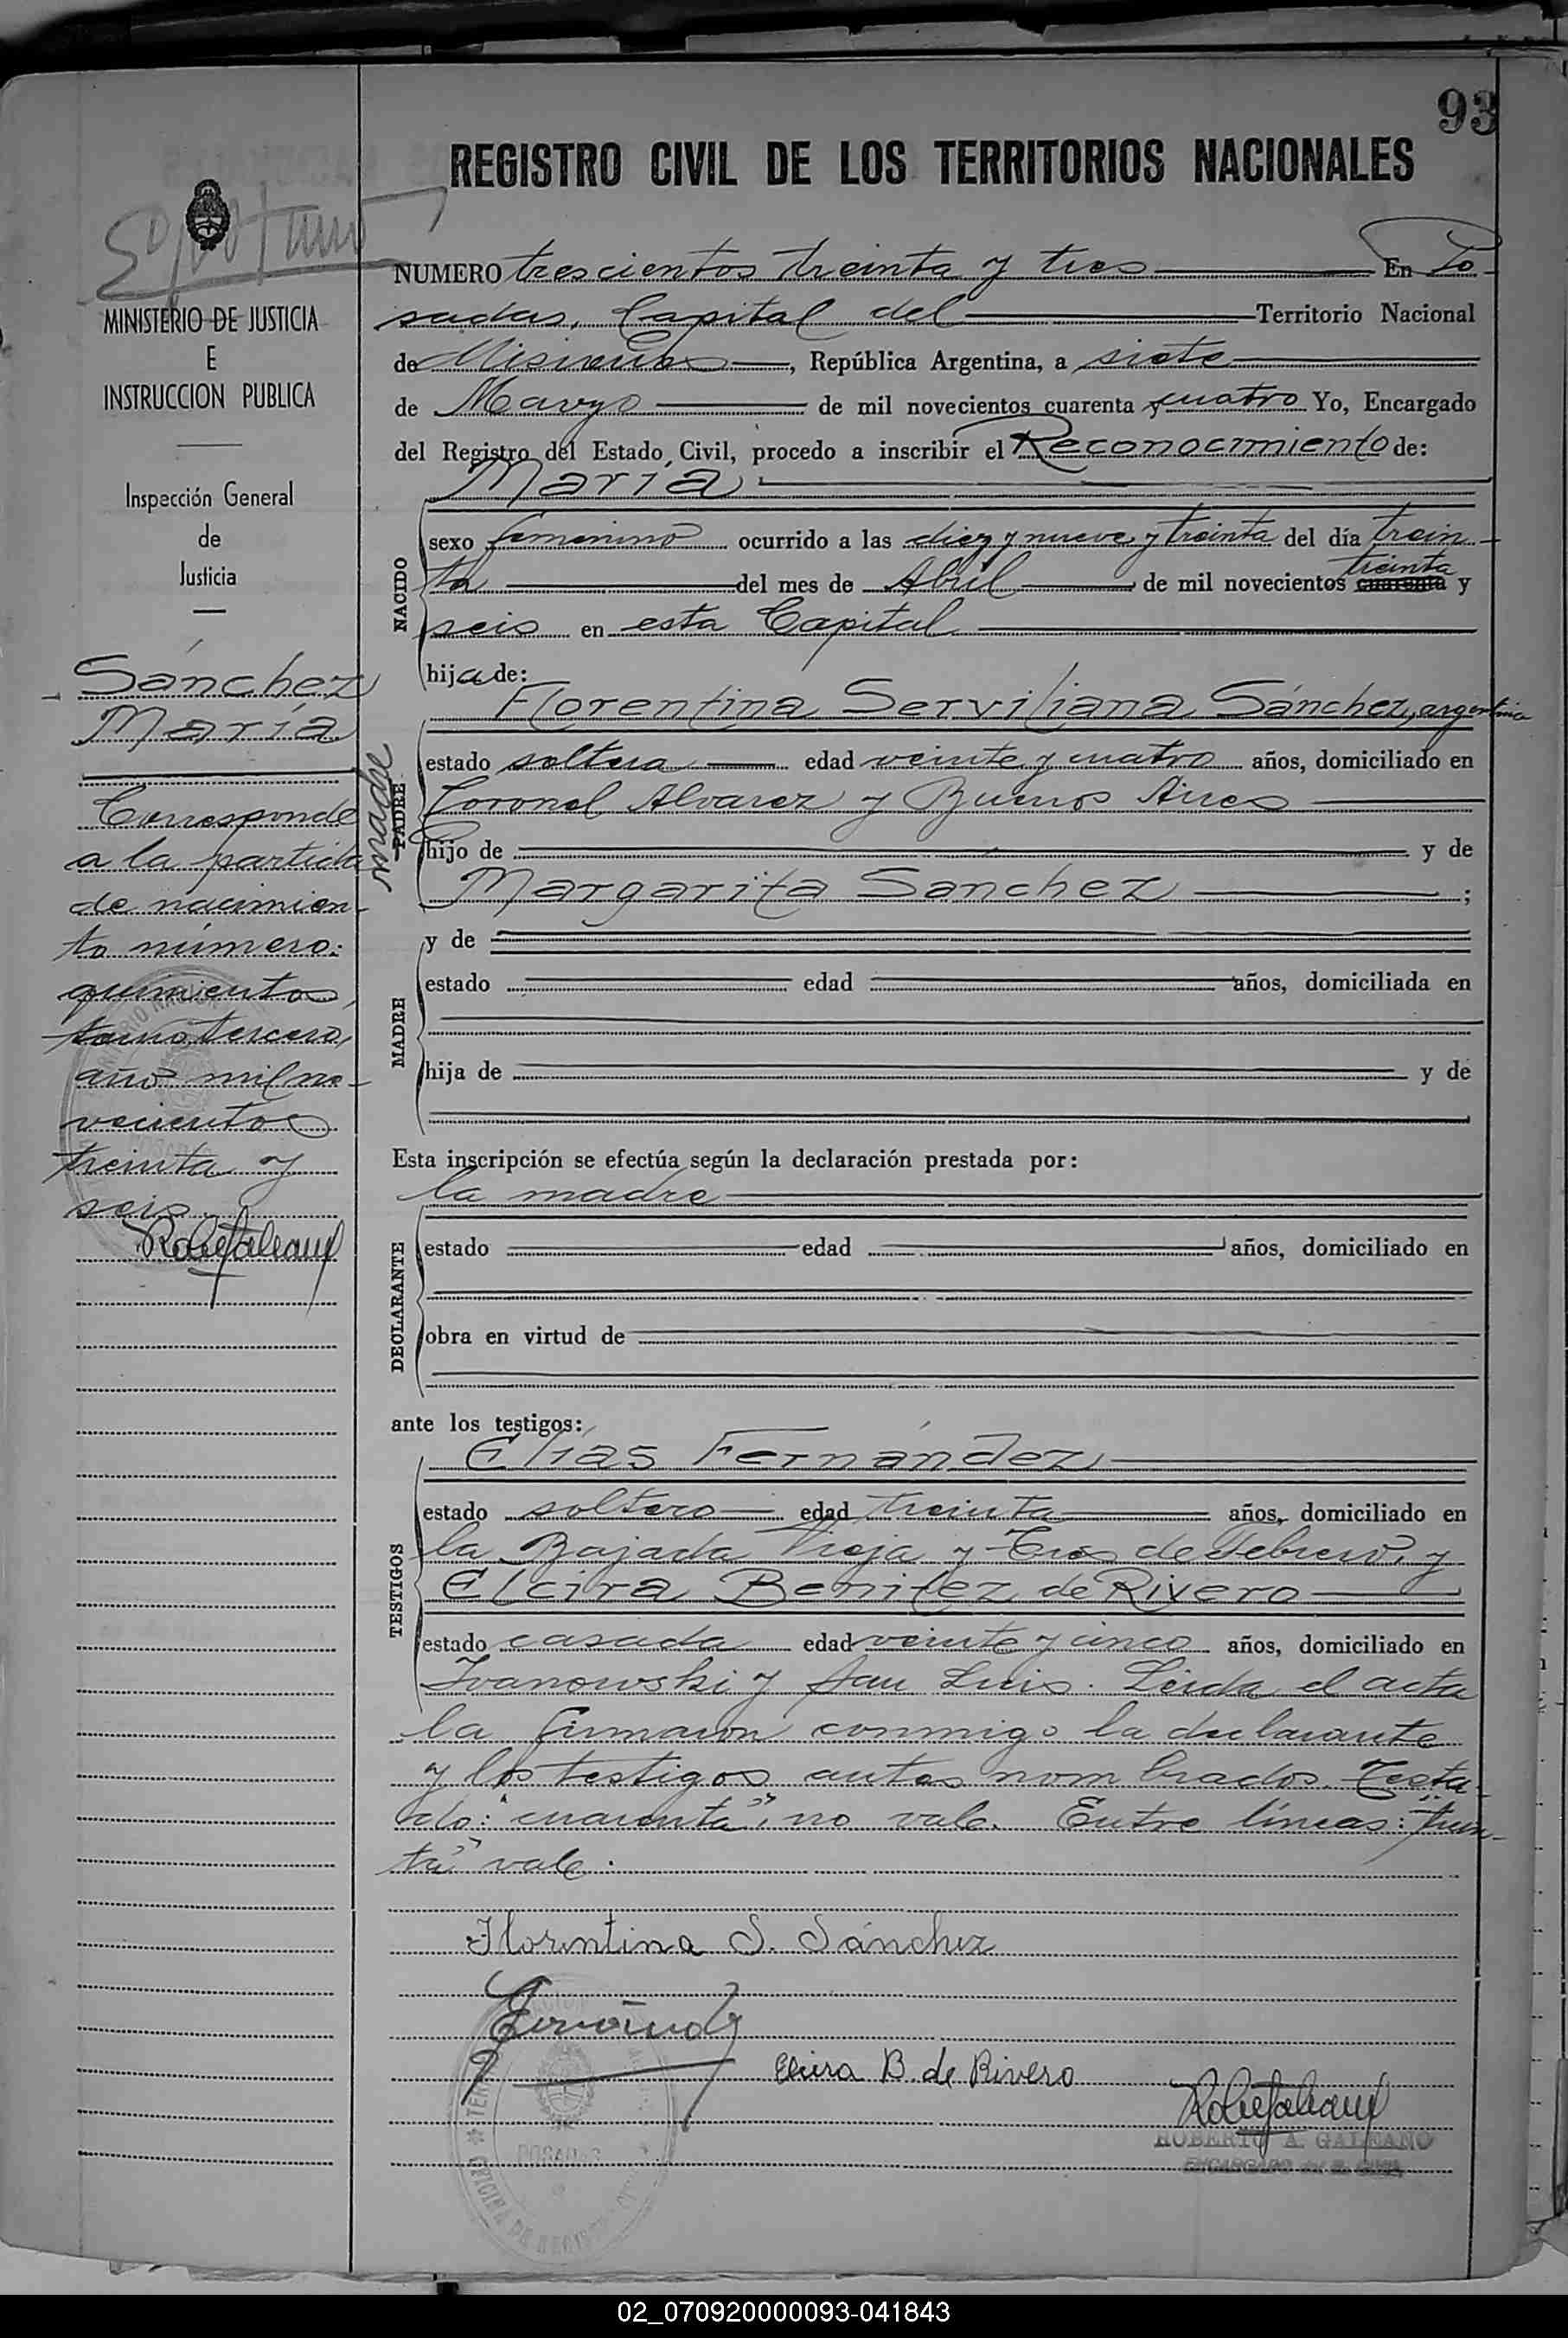 93
REGISTRO CIVIL DE LOS TERRITORIOS NACIONALES
MINISTERIO DE JUSTICIA
E
INSTRUCCION PUBLICA
Inspección General
de
Justicia
Sánchez
María
Corresponde
a la partida
de nacimien-
to número:
quinientos,
tomo tercero,
año mil no-
vecientos
treinta y
seis.
NUMERO trescientos treinta y tres En Po-
sadas, Capital del Territorio Nacional
de Misiones, República Argentina, a siete
de Mayo de mil novecientos cuarenta y cuatro Yo, Encargado
del Registro del Estado Civil, procedo a inscribir el Reconocimiento de:
María
NACIDO
sexo femenino ocurrido a las diez y nueve y treinta del día trein-
ta del mes de Abril de mil novecientos cuarenta treinta y
seis en esta Capital
hija de:
Florentina Serviliana Sánchez, argentina
madre
PADRE
estado soltera edad veinte y cuatro años, domiciliado en
Coronel Alvarez y Buenos Aires
hijo de y de
Margarita Sanchez ;
y de
MADRE
estado edad años, domiciliada en
hija de y de
Esta inscripción se efectúa según la declaración prestada por:
la madre
DECLARANTE
estado edad años, domiciliado en
obra en virtud de
ante los testigos:
Elías Fernández
TESTIGOS
estado soltero edad treinta años, domiciliado en
la Bajada Vieja y Tres de Febrero, y
Elcira Benitez de Rivero
estado casada edad veinte y cinco años, domiciliado en
Ivanowski y San Luis. Leída el acta
la firmaron conmigo la declarante
y los testigos antes nombrados. Testa-
do: "cuarenta", no vale. Entre líneas: "trein-
ta" vale.
Florentina S. Sánchez
Elcira B. de Rivero
ROBERTO A. GALEANO
POSADAS
02_070920000093-041843